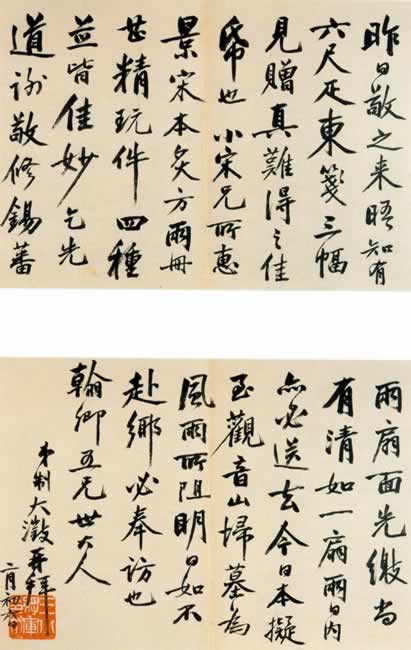 昨日敬之来晤知有
六尺疋東箋三幅
見贈真難得之佳
帋也小宋兄所惠
景宋本灸方兩冊
甚精玩件四種
並皆佳妙乞先
道谢敬修錫蕃
兩扇面先繳尚
有清如一扇兩日内
亦必送去今日本擬
至觀音山掃墓為
風雨所阻明日如不
赴鄉必奉訪也
翰卿五兄世大人
弟制大澂再拜
二月初六日